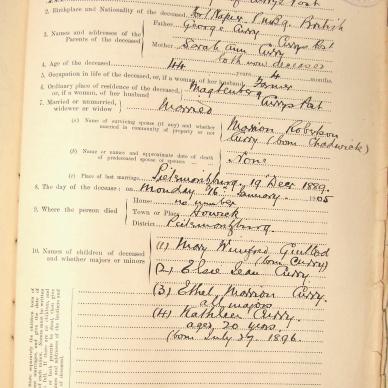 2. Birthplace and Nationality of the deceased. Port Napier, Natal. British
Father George Curry
3. Names and addresses of the Parents of the deceased Currys Post
Mother Sarah Ann Curry
both now deceased
4. Age of the deceased 44 years 4 months.
5. Occupation in life of the deceased, or, if a woman, of her husband Farmer
6. Ordinary place of residence of the deceased, or, if a woman, of her husband Currys Post
7. Married or unmarried, widower or widow Married
(a) Name of surviving spouse (if any) and whether married in community of property or not Marrion Robertson Curry (born Chadwick)
(b) Name or names and approximate date of death of predeceased spouse or spouses None
(c) Place of last marriage. Pietermaritzburg, 19 Decr 1889.
8. The day of the decease: on Monday 16 January 1905
House no number
9. Where the person died Town or Place Howick
District Pietermaritzburg.
10. Names of children of deceased and whether majors or minors
(1) Mary Winifred
(born Curry)
(2) Elsie Jean Curry.
(3) Ethel Marrion Curry.
all majors
(4) Kathleen Curry.
aged 20 years.
(born July 27. 1896.